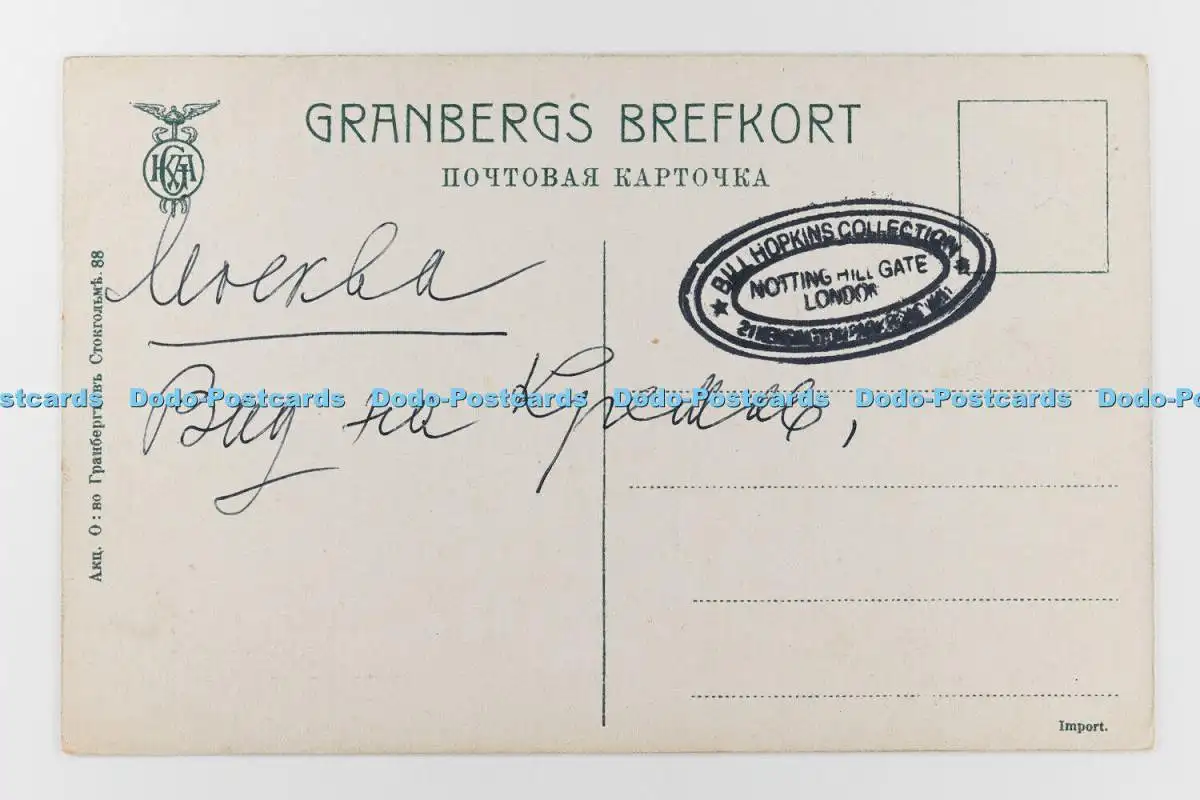 GRANBERGS BREFKORT
ПОЧТОВАЯ КАРТОЧКА
Москва
Вид на Кремль,
BILL HOPKINS COLLECTION
NOTTING HILL GATE
LONDON
Акц. О:во Гранбергъ въ Стокгольмѣ. 88
Dodo-Postcards Dodo-Postcards Dodo-Postcards Dodo-Postcards Dodo-Postcards
Import.